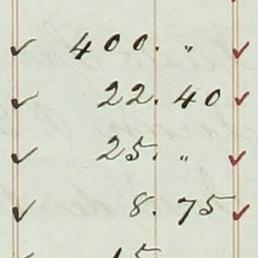 ✓ 400. " ✓
✓ 22. 40 ✓
✓ 25. " ✓
✓ 8. 75 ✓
✓ 15